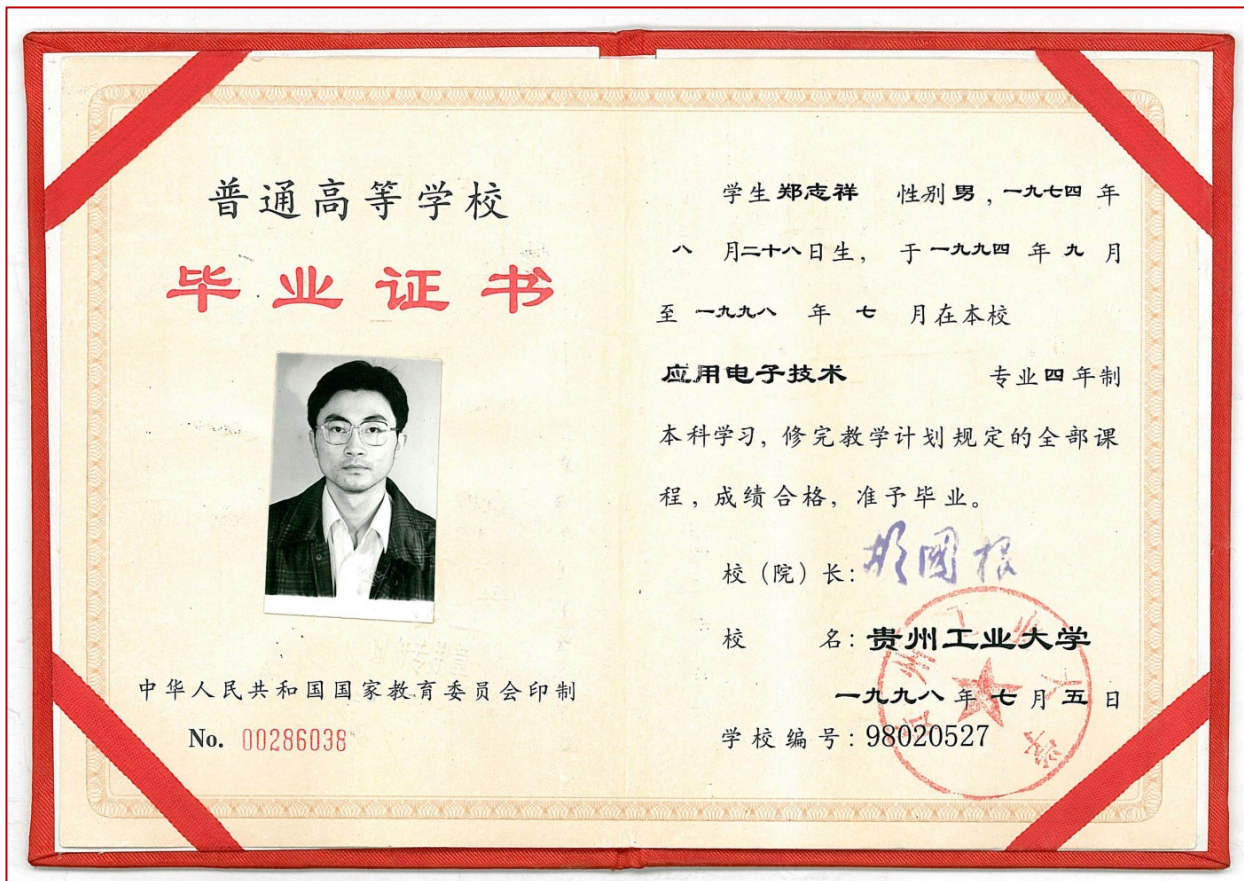 普通高等学校
毕业证书
中华人民共和国国家教育委员会印制
No. 00286038
学生郑志祥 性别男,一九七四年
八月二十八日生, 于一九九四年九月
至一九九八年七月在本校
应用电子技术 专业四年制
本科学习, 修完教学计划规定的全部课
程, 成绩合格, 准予毕业。
校(院)长:
校名: 贵州工业大学
一九九八年七月五日
学校编号: 98020527
贵州工业大学